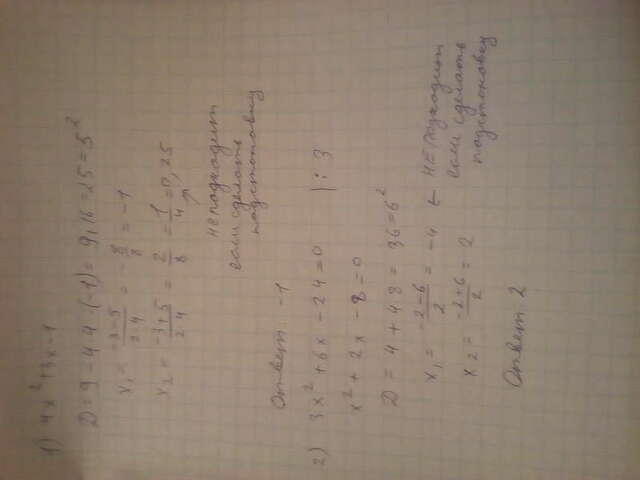 1) 4x²+3x-1
D = 9 - 4·4·(-1) = 9+16 = 25 = 5²
x₁ = -3-5/2·4 = -8/8 = -1
x₂ = -3+5/2·4 = 2/8 = 1/4 = 0,25
не подходит
если сделать
подстоновку
Ответ -1
2) 3x² + 6x - 24 = 0 | : 3
x² + 2x - 8 = 0
D = 4 + 4·8 = 36 = 6²
x₁ = -2-6/2 = -4 ← НЕ подходит
если сделать
подстоновку
x₂ = -2+6/2 = 2
Ответ 2